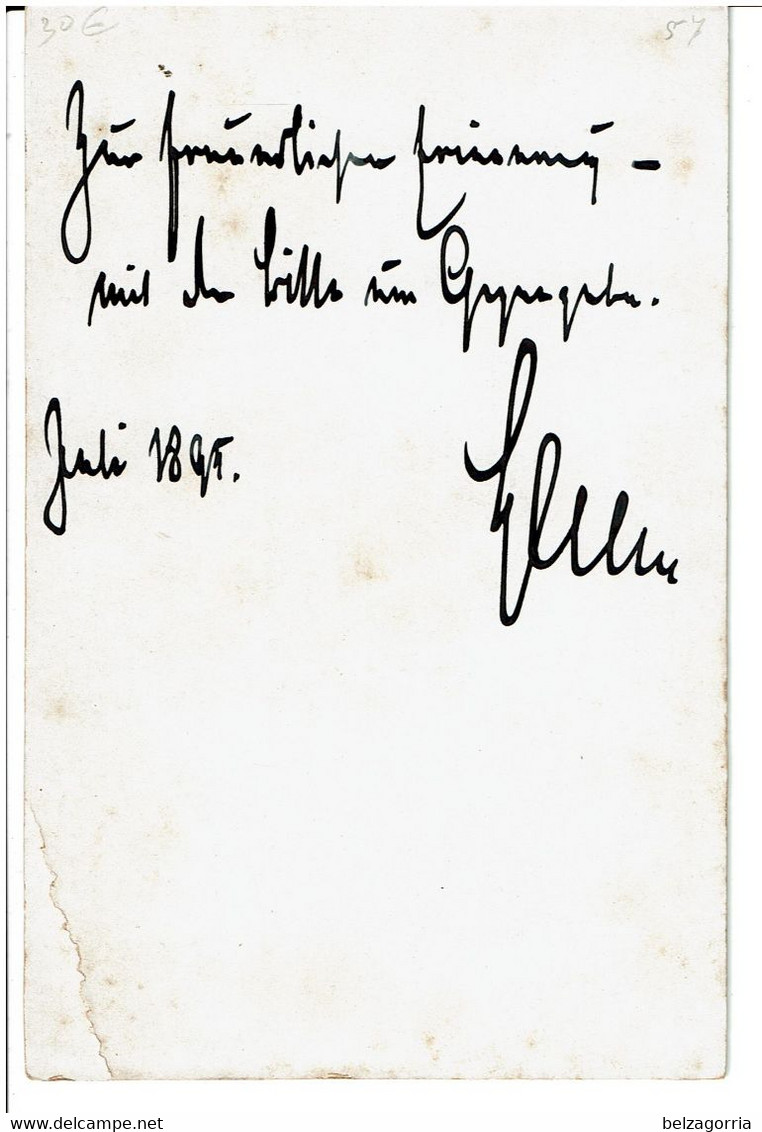 30€ 57
Zur freundlichen Erinnerung –
mit der Bitte um Gegengabe.
Juli 1895.
delcampe.net
belzagorria